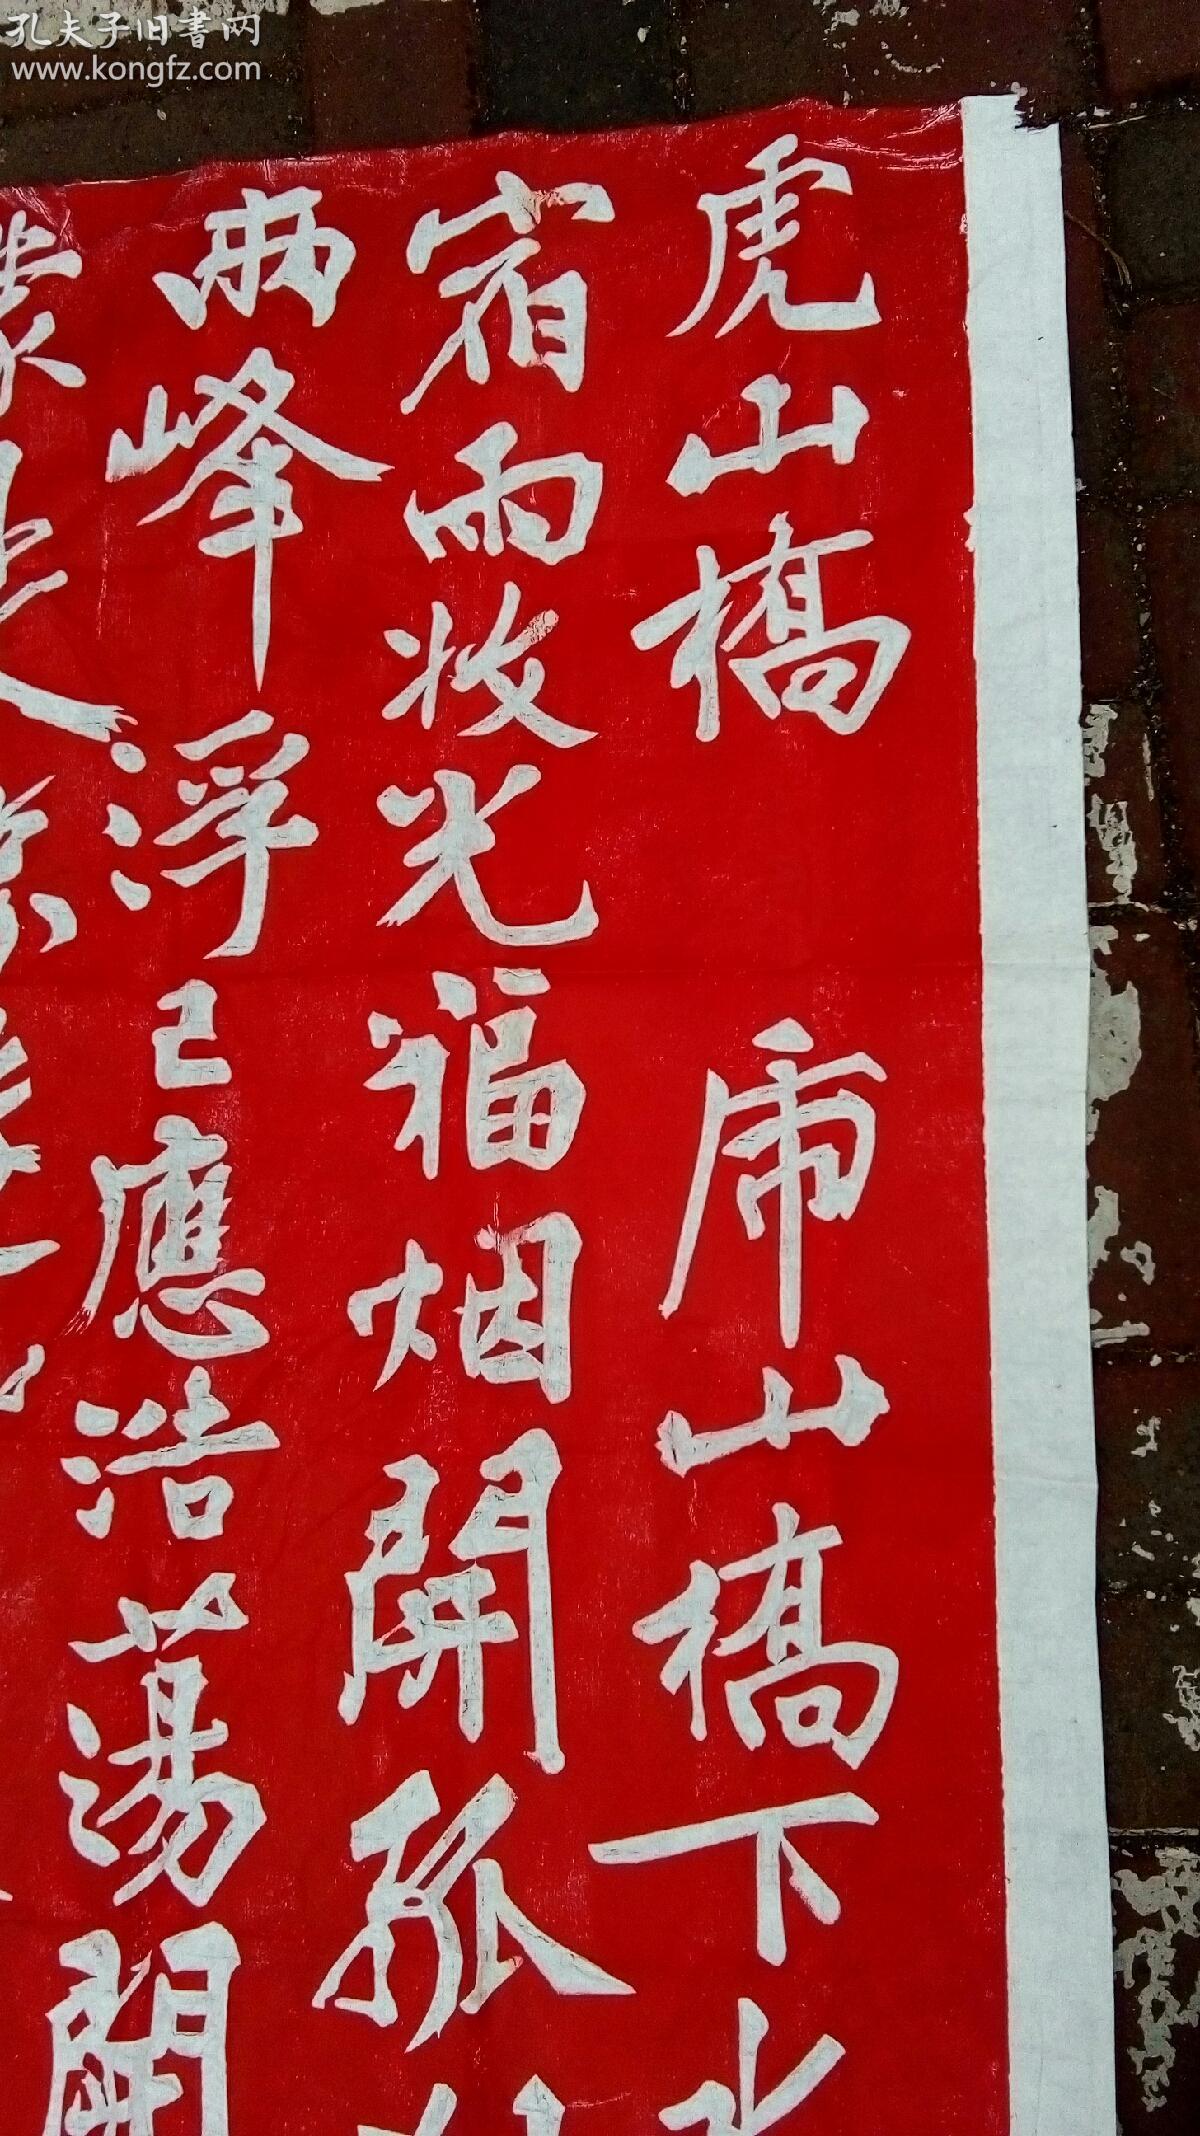 孔夫子旧書网
www.kongfz.com
虎山橋 虎山橋下水
宿雨收光福烟開孤
兩峰浮已應浩蕩開